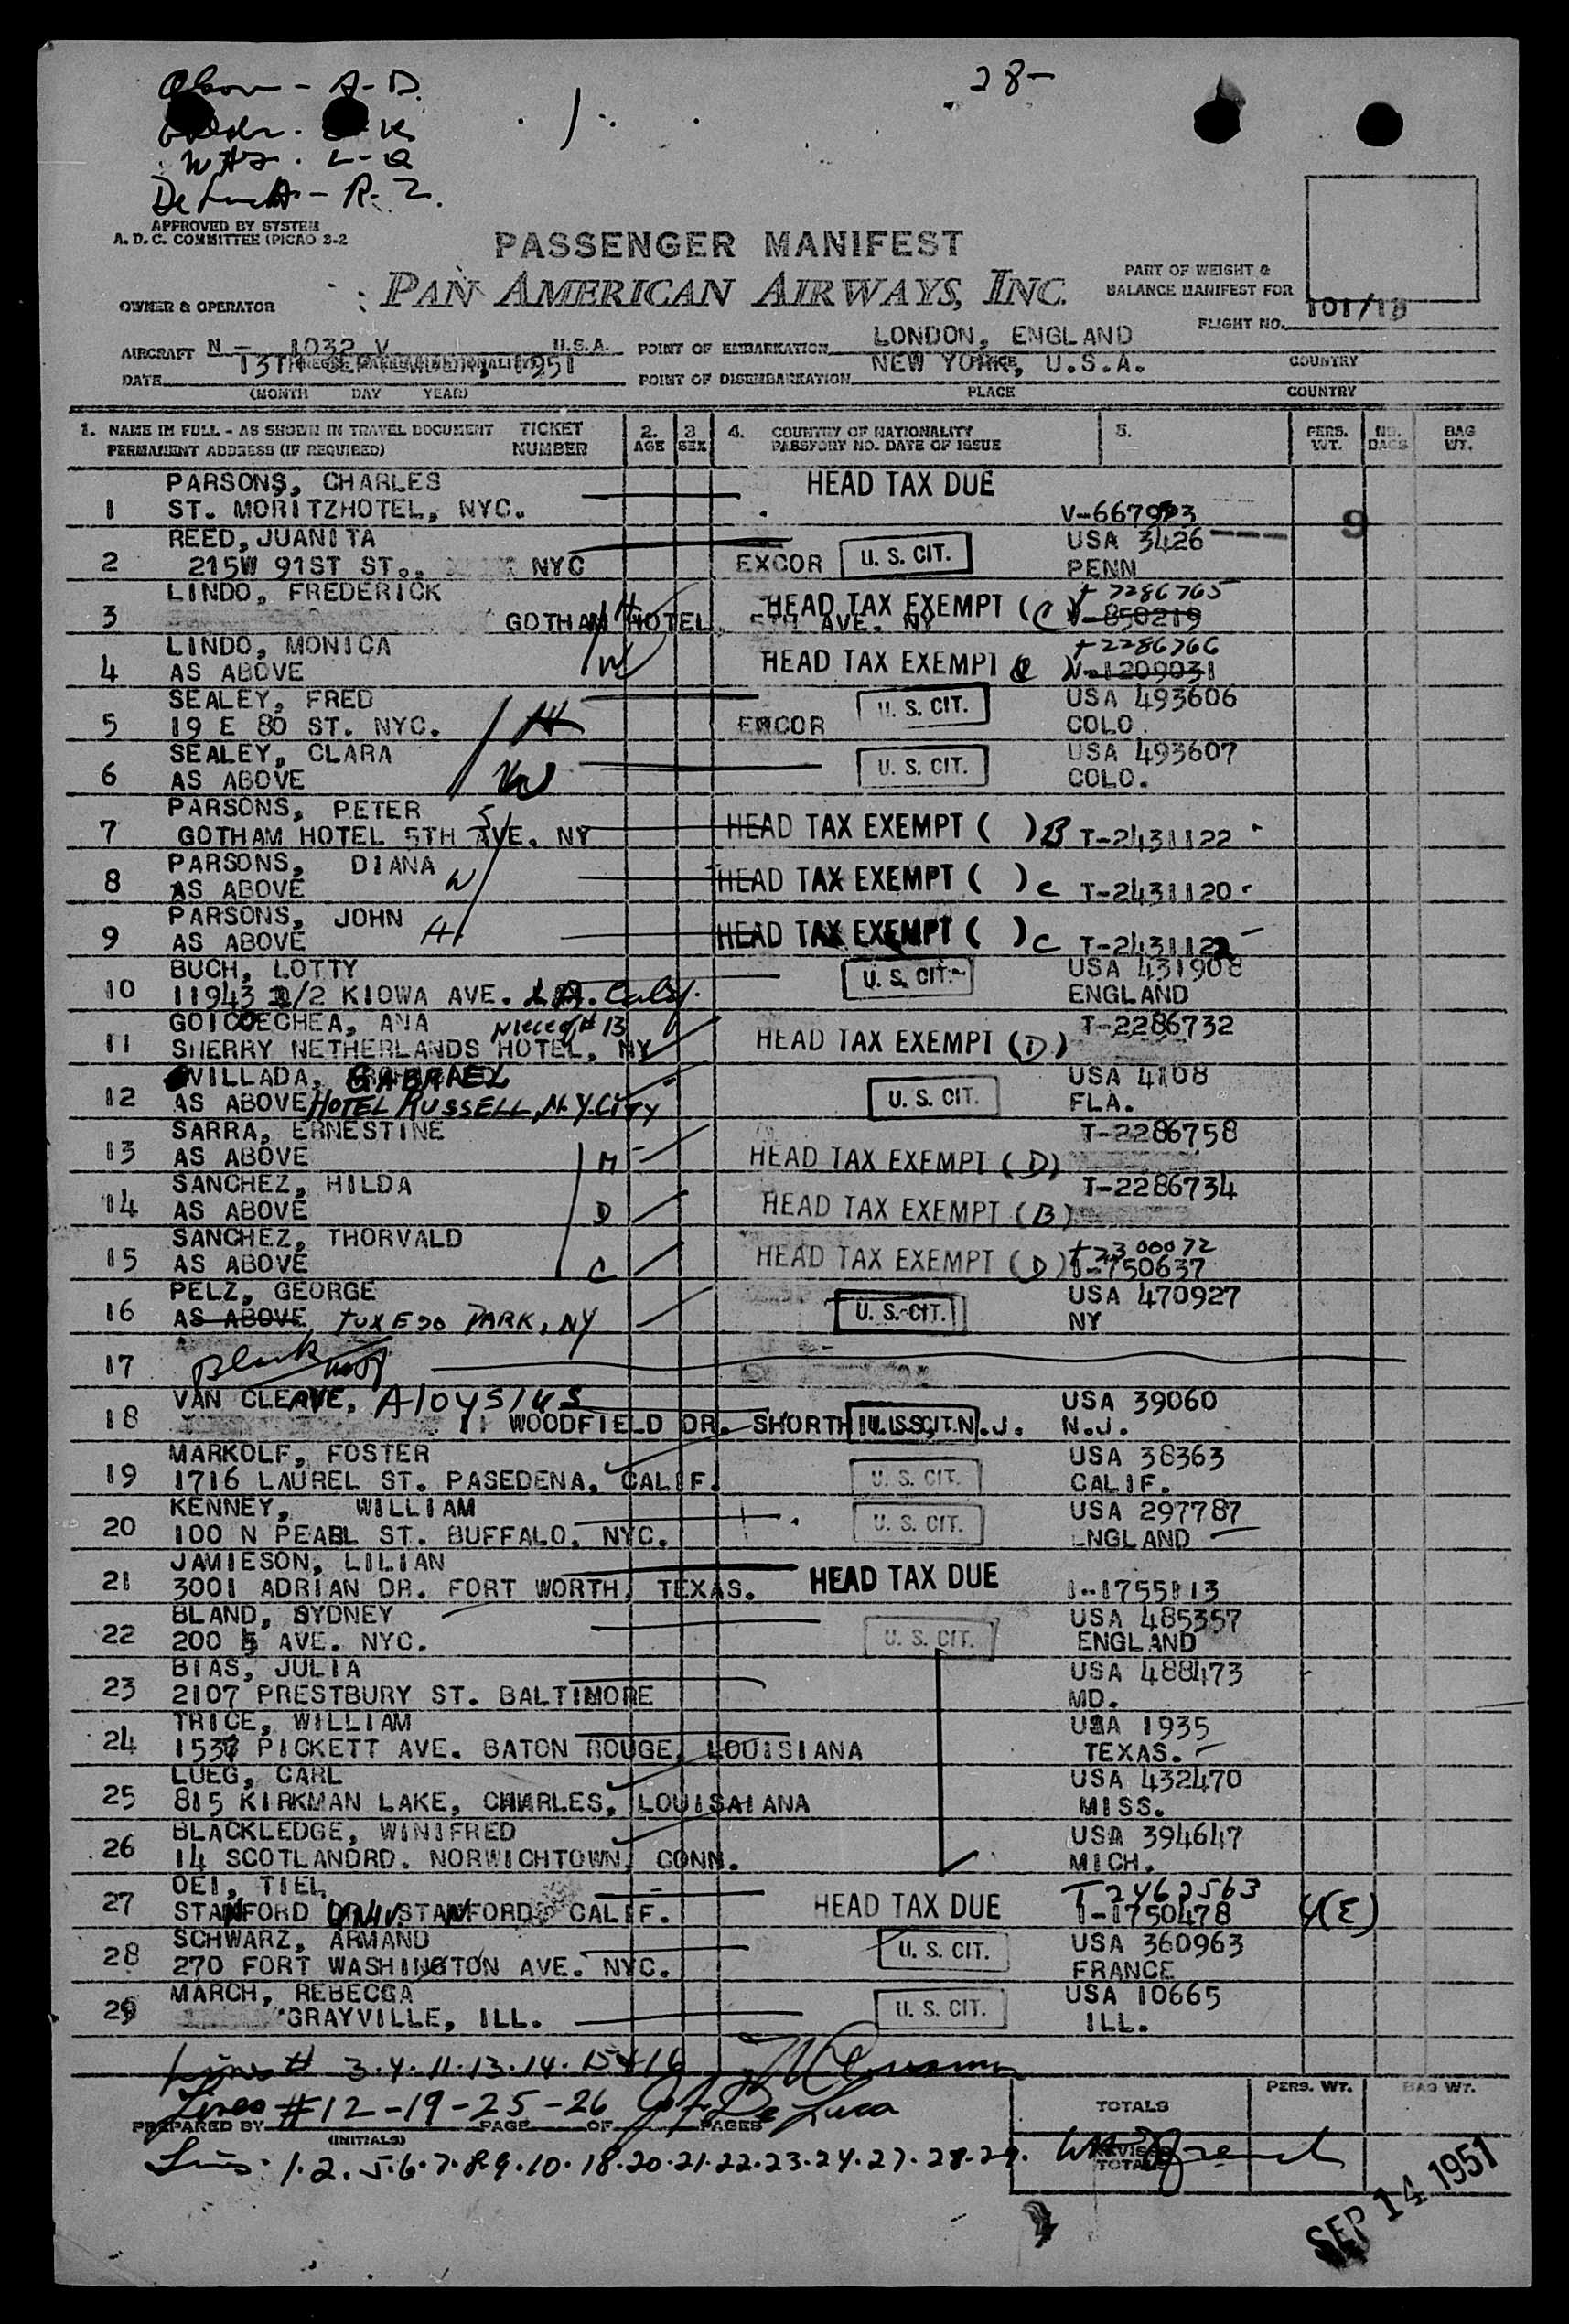 28-
De Lucca - R-Z.
APPROVED BY SYSTEM
A. D. C. COMMITTEE (PICAO 3-2
PASSENGER MANIFEST
PAN AMERICAN AIRWAYS, INC.
PART OF WEIGHT &
BALANCE MANIFEST FOR
OWNER & OPERATOR
FLIGHT NO. 101/13
AIRCRAFT N - 1032 V U.S.A. POINT OF EMBARKATION LONDON, ENGLAND
COUNTRY
DATE 13TH 1951 POINT OF DISEMBARKATION NEW YORK, U.S.A.
(MONTH DAY YEAR) PLACE COUNTRY
1. NAME IN FULL - AS SHOWN IN TRAVEL DOCUMENT TICKET 2. 3 4. COUNTRY OF NATIONALITY 5. PERS. NO. BAG
PERMANENT ADDRESS (IF REQUIRED) NUMBER AGE SEX PASSPORT NO. DATE OF ISSUE WT. BAGS WT.
PARSONS, CHARLES HEAD TAX DUE
1 ST. MORITZHOTEL, NYC. V-667993 9
REED, JUANITA USA 3426
2 215W 91ST ST., NYC EXCOR U. S. CIT. PENN
LINDO, FREDERICK HEAD TAX EXEMPT (C) T 2286765
3 GOTHAM HOTEL, 5TH AVE. NY H V-850219
LINDO, MONICA T 2286766
4 AS ABOVE W HEAD TAX EXEMPT C V-1209031
SEALEY, FRED U. S. CIT. USA 493606
5 19 E 80 ST. NYC. H EXCOR COLO.
SEALEY, CLARA USA 493607
6 AS ABOVE W U. S. CIT. COLO.
PARSONS, PETER S
7 GOTHAM HOTEL 5TH AVE. NY HEAD TAX EXEMPT ( ) B T-2431122
PARSONS, DIANA
8 AS ABOVE W HEAD TAX EXEMPT ( ) C T-2431120
PARSONS, JOHN
9 AS ABOVE H HEAD TAX EXEMPT ( ) C T-2431122
BUCH, LOTTY USA 431908
10 11943 1/2 KIOWA AVE. L.A. Calif. U. S. CIT. ENGLAND
GOICOECHEA, ANA Niece of # 13 T-2286732
11 SHERRY NETHERLANDS HOTEL, NY HEAD TAX EXEMPT (D)
VILLADA, GABRAEL USA 4108
12 AS ABOVE HOTEL RUSSELL, N.Y. CITY U. S. CIT. FLA.
SARRA, ERNESTINE T-2286758
13 AS ABOVE M HEAD TAX EXEMPT (D)
SANCHEZ, HILDA T-2286734
14 AS ABOVE D HEAD TAX EXEMPT (B)
SANCHEZ, THORVALD T 2300072
15 AS ABOVE C HEAD TAX EXEMPT (D) I-750637
PELZ, GEORGE USA 470927
16 AS ABOVE TUXEDO PARK, NY U. S. CIT. NY
17 Blank
VAN CLEAVE, Aloysius USA 39060
18 11 WOODFIELD DR. SHORTH U. S. CIT. N.J. N.J.
MARKOLF, FOSTER USA 38363
19 1716 LAUREL ST. PASEDENA, CALIF. U. S. CIT. CALIF.
KENNEY, WILLIAM USA 297787
20 100 N PEARL ST. BUFFALO, NYC. U. S. CIT. ENGLAND
JAMIESON, LILIAN HEAD TAX DUE
21 3001 ADRIAN DR. FORT WORTH, TEXAS. I-1755113
BLAND, SYDNEY USA 485357
22 200 5 AVE. NYC. U. S. CIT. ENGLAND
BIAS, JULIA USA 488473
23 2107 PRESTBURY ST. BALTIMORE MD.
TRICE, WILLIAM USA 1935
24 1537 PICKETT AVE. BATON ROUGE, LOUISIANA TEXAS.
LUEG, CARL USA 432470
25 815 KIRKMAN LAKE, CHARLES, LOUISAIANA MISS.
BLACKLEDGE, WINIFRED USA 394647
26 14 SCOTLANDRD. NORWICHTOWN, CONN. MICH.
OEI, TIEL T 2462563
27 STANFORD UNIV. STANFORD CALIF. HEAD TAX DUE I-1750478 4(E)
SCHWARZ, ARMAND USA 360963
28 270 FORT WASHINGTON AVE. NYC. U. S. CIT. FRANCE
MARCH, REBECCA USA 10665
29 GRAYVILLE, ILL. U. S. CIT. ILL.
Lines # 3.4.11.13.14.15+16
Lines #12-19-25-26 De Luca
PREPARED BY PAGE OF PAGES
(INITIALS)
PERS. WT. BAG WT.
TOTALS
Lines: 1.2.5.6.7.8.9.10.18.20.21.22.23.24.27.28.29.
REVISED
TOTALS
SEP 14 1951